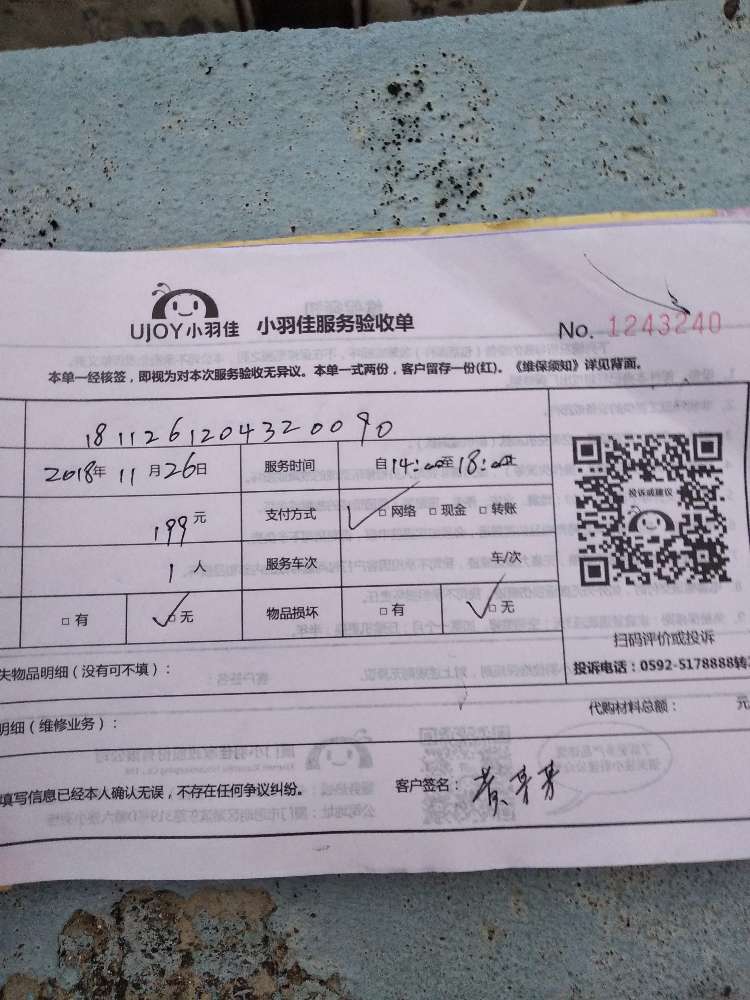 UJOY小羽佳 小羽佳服务验收单 No. 1243240
本单一经核签，即视为对本次服务验收无异议。本单一式两份，客户留存一份(红)。《维保须知》详见背面。
1811261204320090
2018年 11月26日 服务时间 自14:00至18:00止
199元 支付方式 □网络 □现金 □转账
1人 服务车次 车/次
□有 □无 物品损坏 □有 □无
投诉或建议
扫码评价或投诉
投诉电话：0592-5178888转
失物品明细（没有可不填）：
明细（维修业务）： 代购材料总额： 元
填写信息已经本人确认无误，不存在任何争议纠纷。 客户签名：